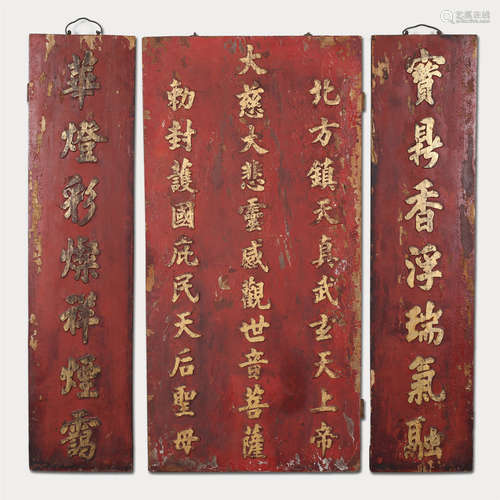 寶鼎香浮瑞氣融
北方鎮天真武玄天上帝
大慈大悲靈感觀世音菩薩
勅封護國庇民天后聖母
華燈彩燦祥煙靄